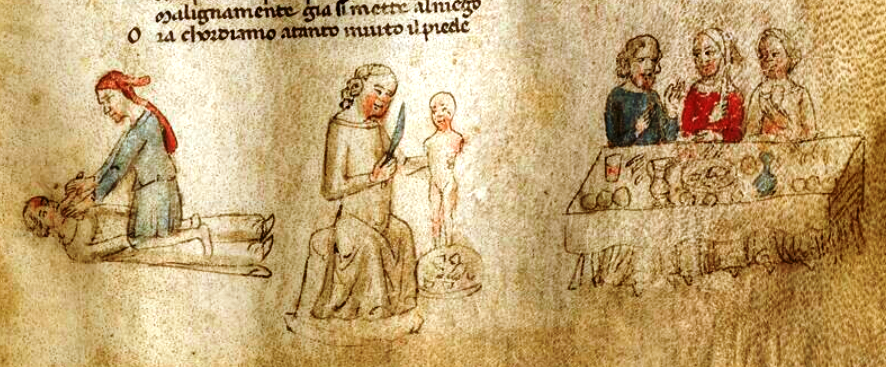 malignamente gia si mette alniego
O ra chordiamo atanto inuito ilpiede